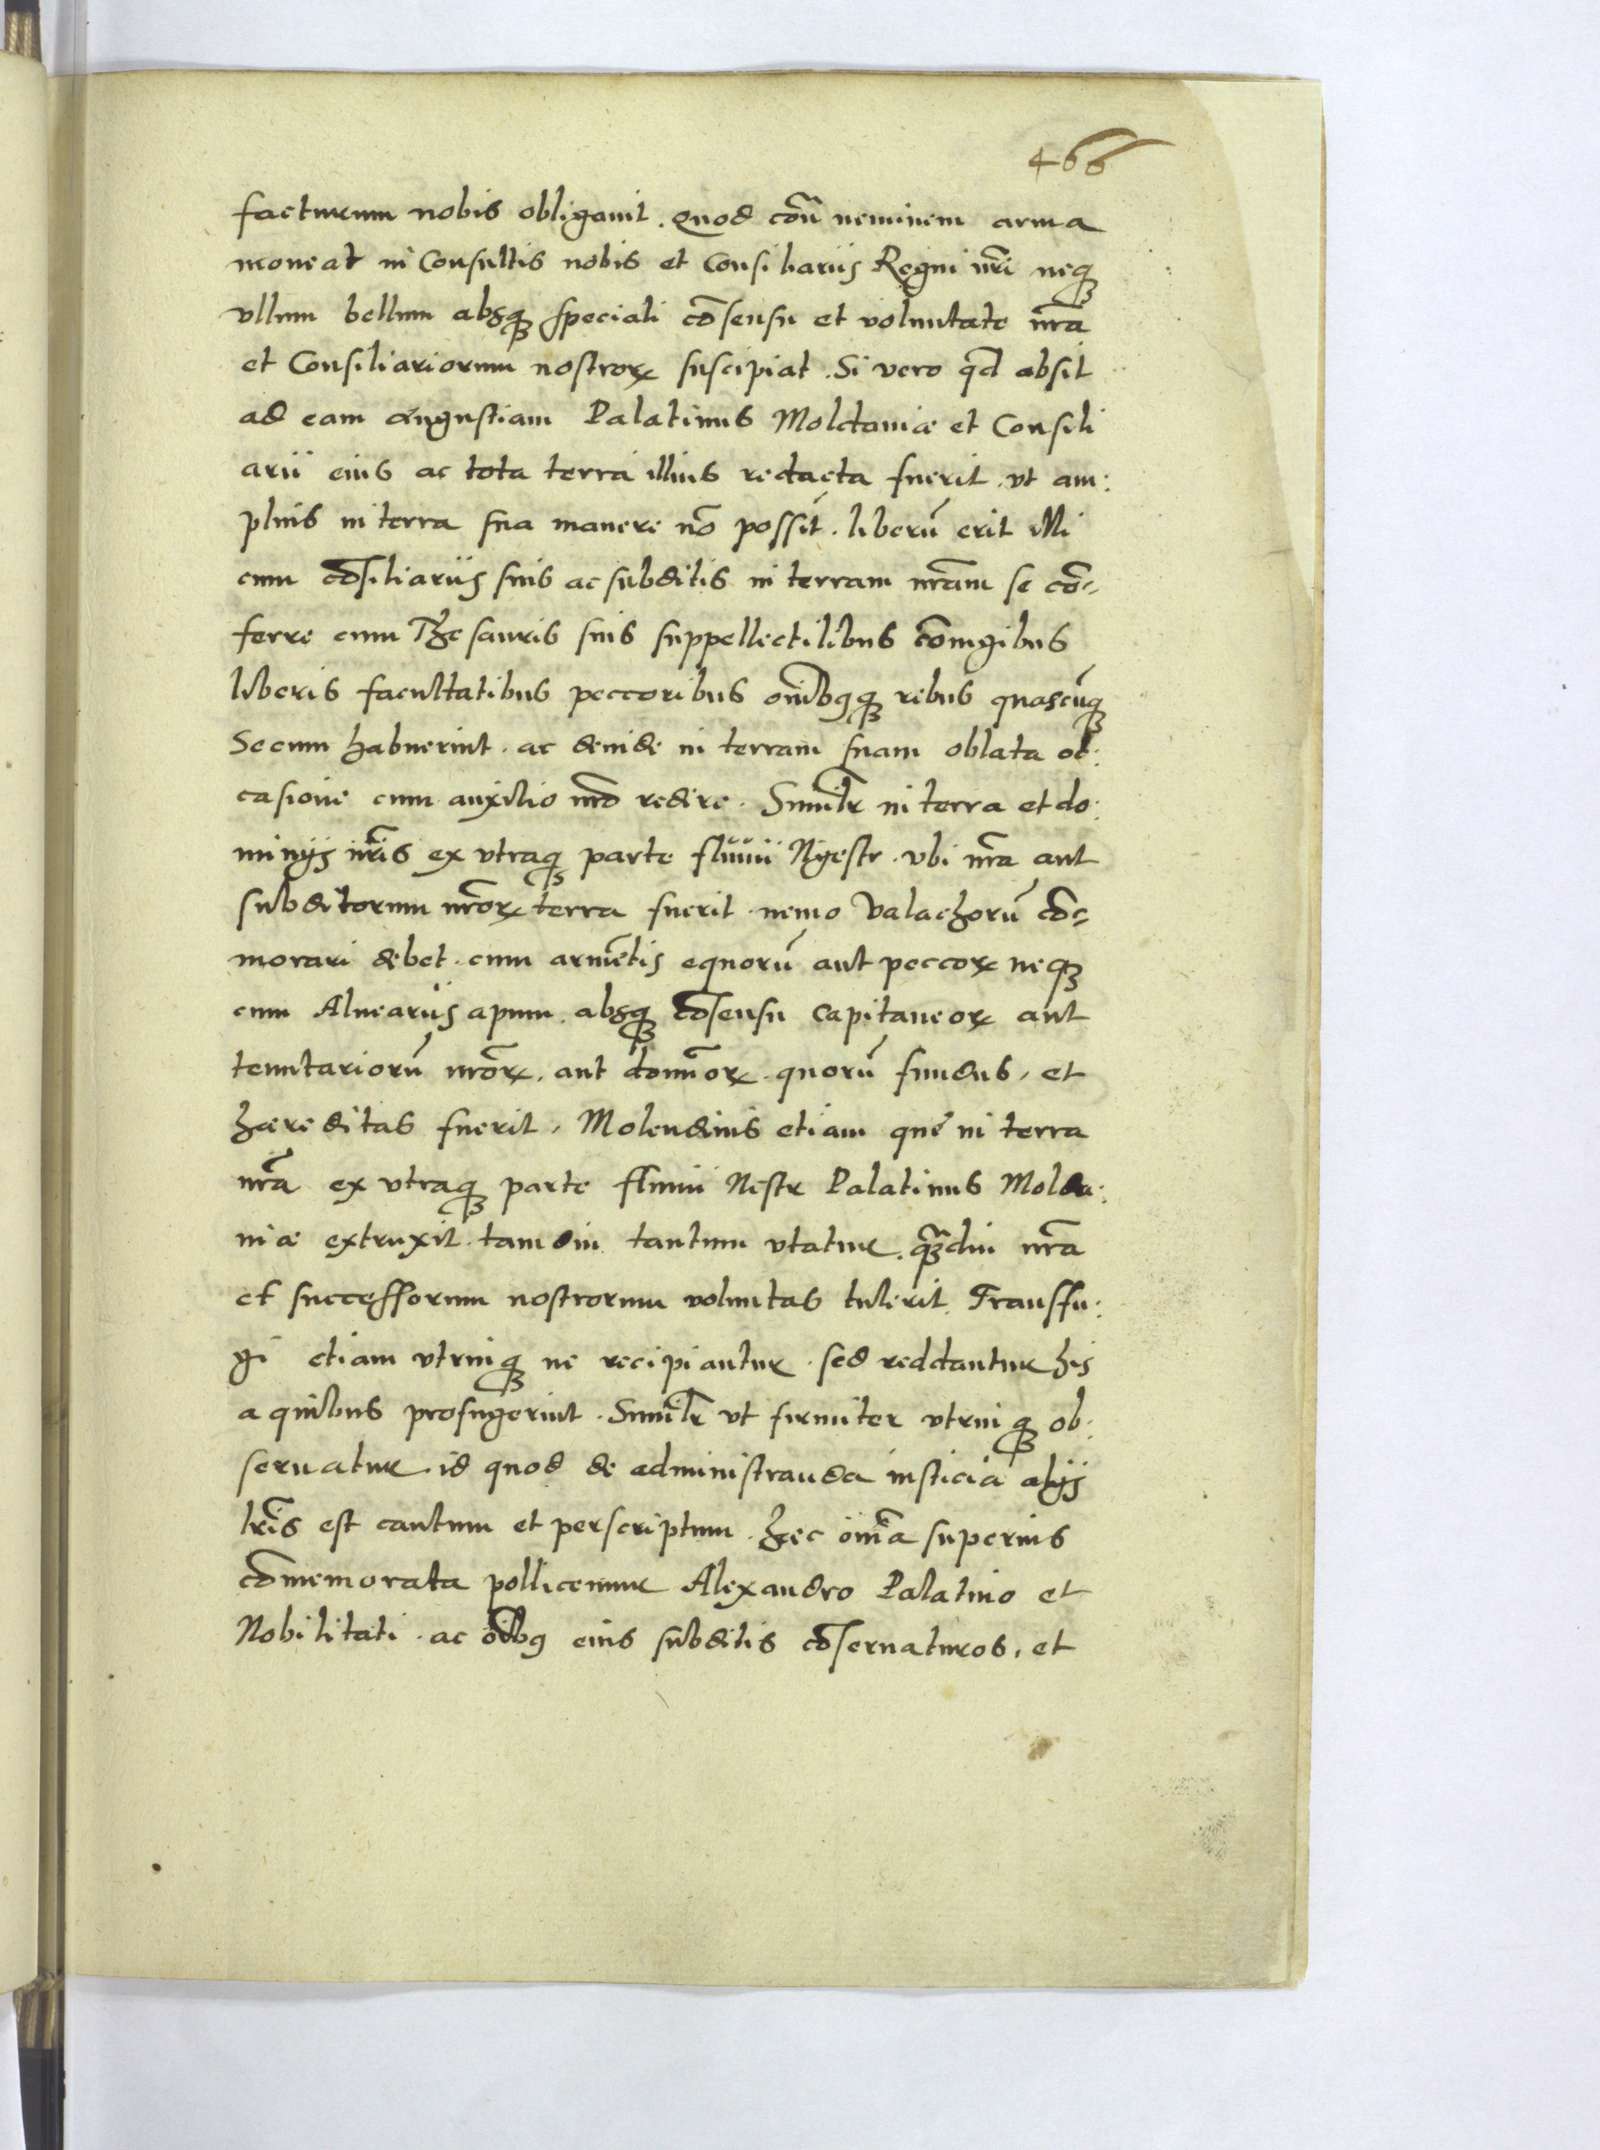 466
facturum nobis obligavit. Quod con̄ neminem arma
moveat in Consultis nobis et Consiliariis Regni nr̄i neqꝫ
ullum bellum absqꝫ speciali cōsensu et voluntate nr̄a
et Consiliariorum nostrorꝝ suscipiat. Si vero qd̄ absit
ad eam angustiam Palatinus Moldaviæ et Consili
arii eius ac tota terra illius redacta fuerit. ut am:
plius in terra sua manere nō possit. liberū erit illi
cum cōsiliariis suis ac subditis in terram nr̄am se cō-
ferre cum Thesauris suis suppellectilibus cōiugibus
liberis facultatibus peccoribus om̄ibꝰqꝫ rebus quascūqꝫ
Secum habuerint. ac deinde in terram suam oblata oc:
casione cum auxilio nr̄o redire. Similr̄ in terra et do:
minijs nr̄is ex utraqꝫ parte fluvii Nyestr. ubi nr̄a aut
subditorum nr̄orꝝ terra fuerit. nemo Valachorū cō-
morari debet. cum armētis equorū aut peccorꝝ neqꝫ
cum Alueariis apum. absqꝫ cōsensu capitaneorꝝ aut
tenutariorū nr̄orꝝ. aut domīorꝝ. quorū fundus, et
hæreditas fuerit, Molendinis etiam quę in terra
nr̄a ex utraqꝫ parte fluvii Nestr Palatinus Molda:
viæ extruxit. tamdiu tantum utatur. qꝫ̄diu nr̄a
et successorum nostrorum voluntas tulerit. Transfu:
gi etiam utrinqꝫ ne recipiantur. sed reddantur his
a quibus profugerint. Similr̄ ut firmiter utrinqꝫ ob:
servatur. id quod de administranda iusticia alijs
lr̄is est cautum et perscriptum. Hęc om̄ia superius
cōmemorata pollicemur Alexandro Palatino et
Nobilitati. ac oībꝰ eius subditis cōservaturos, et